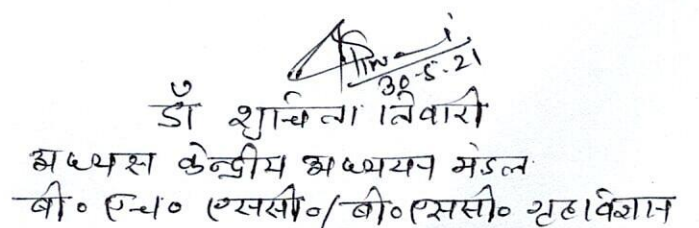 30-5-21
डॉ शुचिता तिवारी
अध्यक्ष केन्द्रीय अध्ययन मंडल
बी० एच० एससी०/बी०एससी० गृहविज्ञान